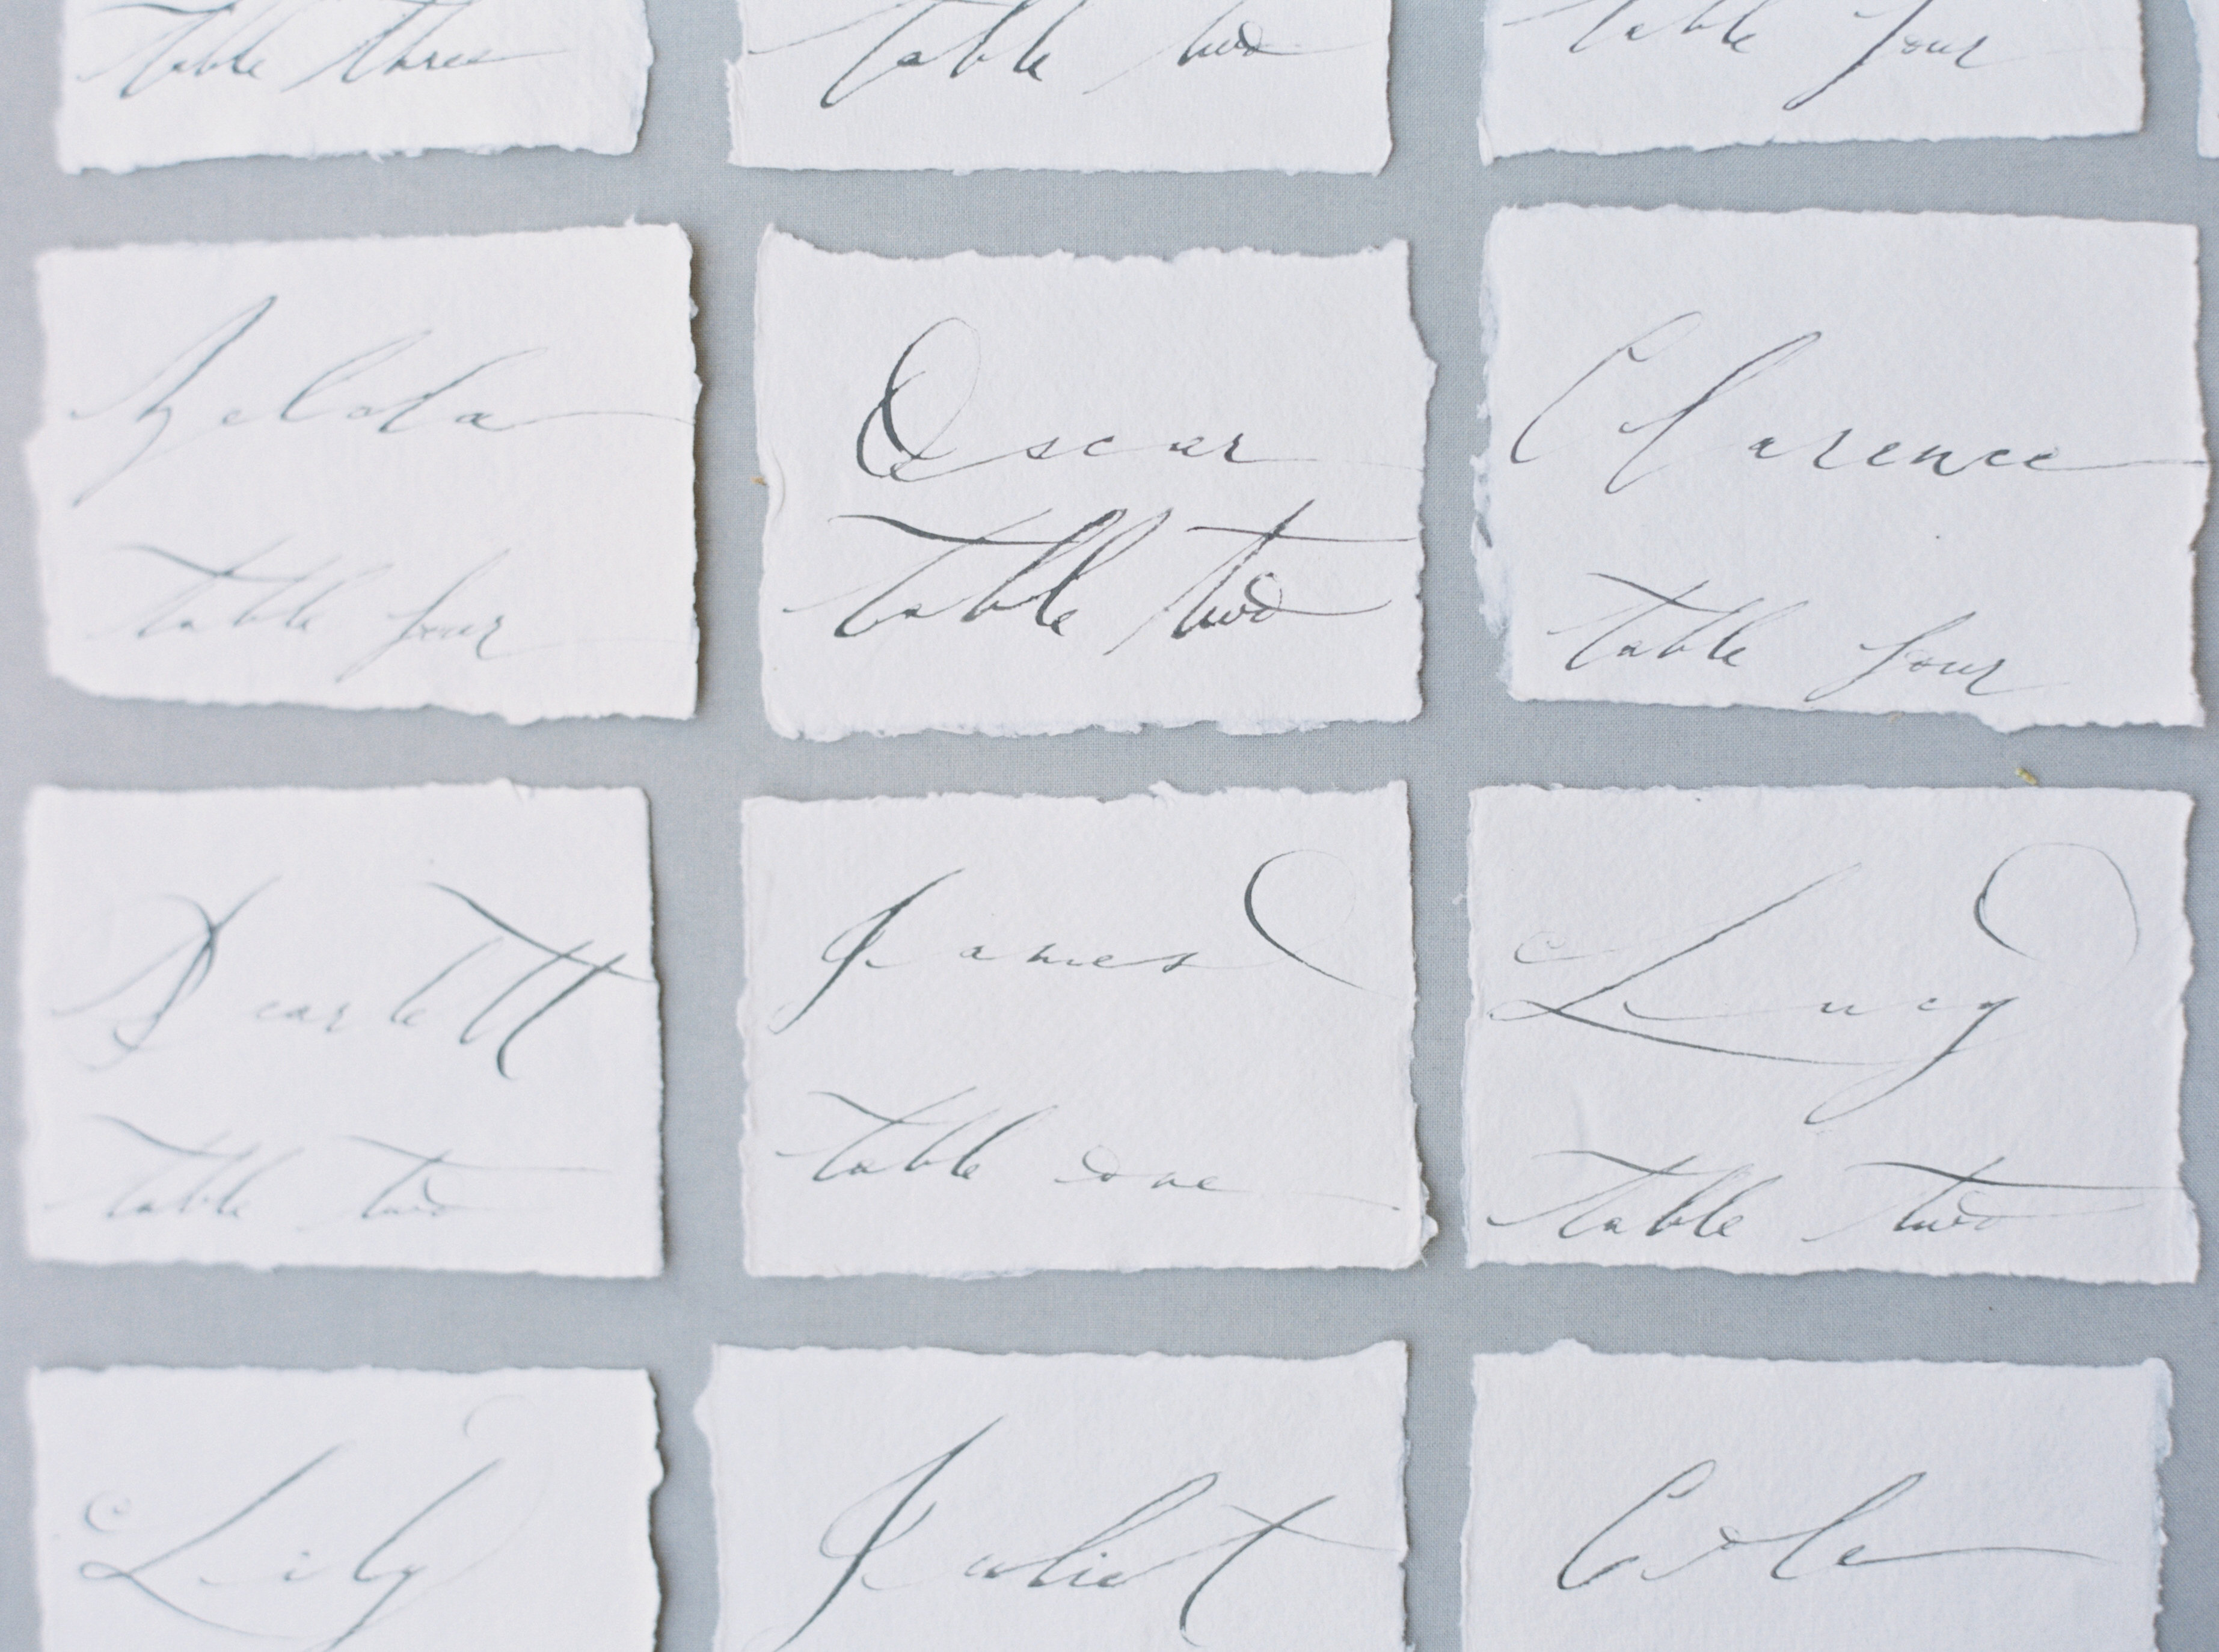 table three
table two
table four
Zelda
table four
Oscar
table two
Clarence
table four
Scarlett
table two
James
table one
Lucy
table two
Lily
Juliet
Cole